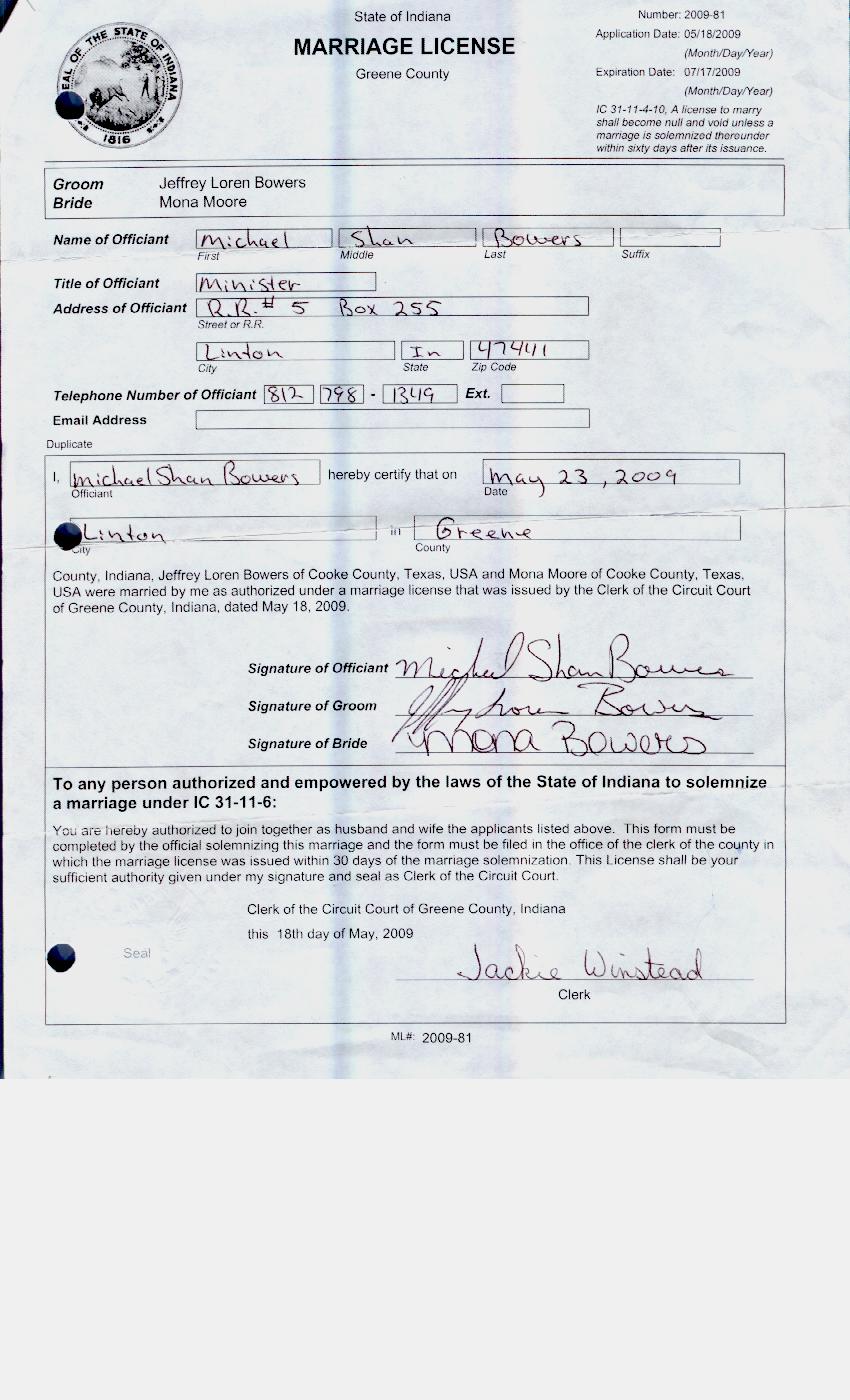 State of Indiana
MARRIAGE LICENSE
Greene County
Number: 2009-81
Application Date: 05/18/2009
(Month/Day/Year)
Expiration Date: 07/17/2009
(Month/Day/Year)
IC 31-11-4-10, A license to marry
shall become null and void unless a
marriage is solemnized thereunder
within sixty days after its issuance.
SEAL OF THE STATE OF INDIANA
1816
Groom Jeffrey Loren Bowers
Bride Mona Moore
Name of Officiant Michael Shan Bowers
First Middle Last Suffix
Title of Officiant Minister
Address of Officiant R.R.# 5 Box 255
Street or R.R.
Linton In 47441
City State Zip Code
Telephone Number of Officiant 812 798 - 1349 Ext.
Email Address
Duplicate
I, Michael Shan Bowers hereby certify that on May 23, 2009
Officiant Date
Linton in Greene
City County
County, Indiana, Jeffrey Loren Bowers of Cooke County, Texas, USA and Mona Moore of Cooke County, Texas,
USA were married by me as authorized under a marriage license that was issued by the Clerk of the Circuit Court
of Greene County, Indiana, dated May 18, 2009.
Signature of Officiant Michael Shan Bowers
Signature of Groom Jeffrey Loren Bowers
Signature of Bride Mona Bowers
To any person authorized and empowered by the laws of the State of Indiana to solemnize
a marriage under IC 31-11-6:
You are hereby authorized to join together as husband and wife the applicants listed above. This form must be
completed by the official solemnizing this marriage and the form must be filed in the office of the clerk of the county in
which the marriage license was issued within 30 days of the marriage solemnization. This License shall be your
sufficient authority given under my signature and seal as Clerk of the Circuit Court.
Clerk of the Circuit Court of Greene County, Indiana
this 18th day of May, 2009
Seal
Jackie Winstead
Clerk
ML#: 2009-81